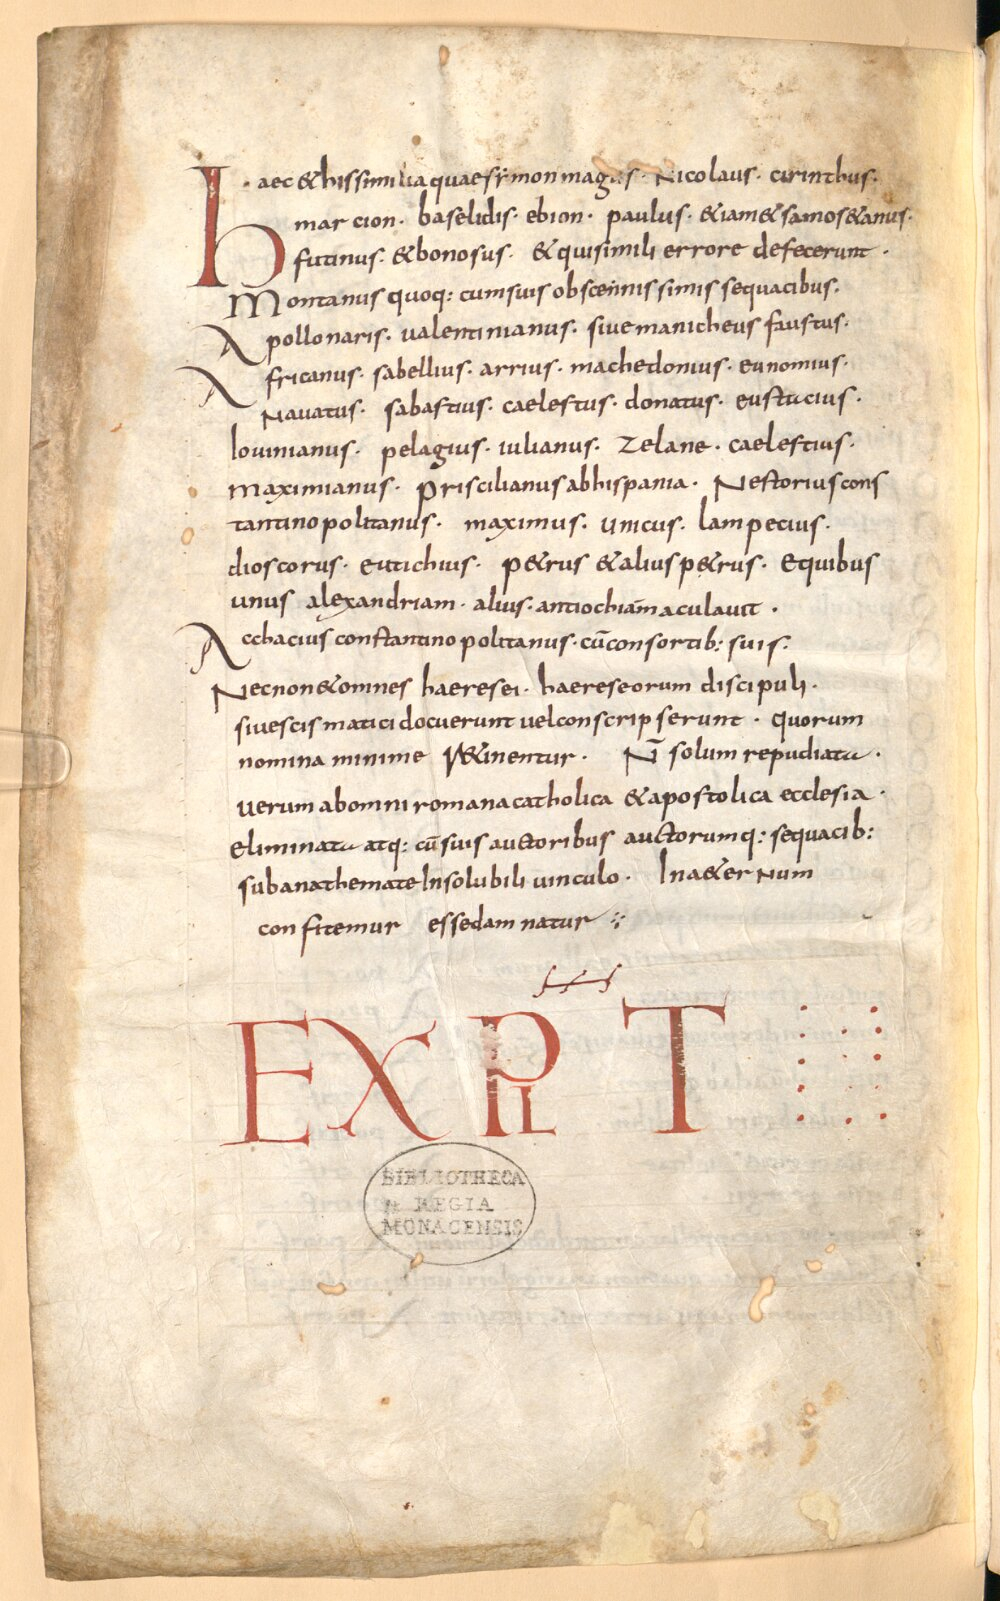 H aec & his similia quae symon magus · Nicolaus · cirinthus ·
marcion · baselidis · ebion · paulus · &iam & samos&anus ·
futinus · & bonosus · & qui simili errore defecerunt ·
Montanus quoq: cum suis obscennissimis sequacibus ·
Apollonaris · ualentinianus · siue manicheus faustus ·
Africanus · sabellius · arrius · machedonius · eunomius ·
Nauatus · sabastius · caelestus · donatus · eustacius ·
Iouinianus · pelagius · iulianus · Zelane · caelestius ·
maximianus · Priscilianus ab hispania · Nestorius cons
tantinopolitanus · maximus · unicus · lampecius ·
dioscorus · eutichius · p&rus & alius p&rus · equibus
unus alexandriam · alius · antiochiā maculauit ·
Acchacius constantinopolitanus · cū consortib: suis ·
Necnon & omnes haeresei · haereseorum discipuli ·
siue scismatici docuerunt uel conscripserunt · quorum
nomina minime r&inentur · N̄ solum repudiata ·
uerum ab omni romana catholica & apostolica ecclesia ·
eliminata atq: cū suis auctoribus auctorumq: sequacib:
sub anathemate Insolubili uinculo · In a&ernum
confitemur esse damnatur
EXPLT
BIBLIOTHECA
REGIA
MONACENSIS